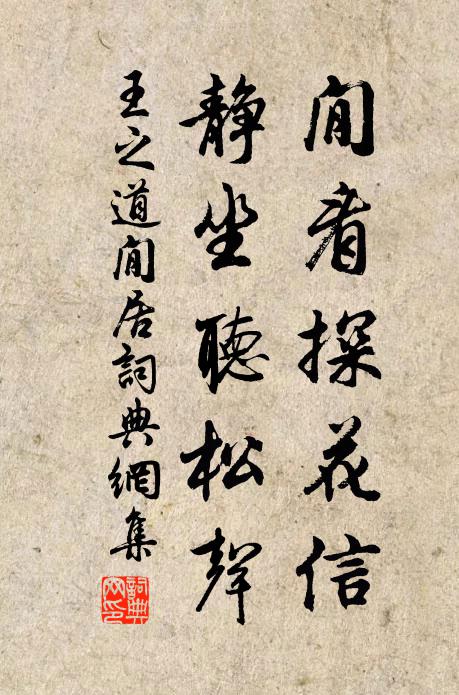 閒看探花信
靜坐聽松聲
王之道閒居詞典網集
詞典
网印